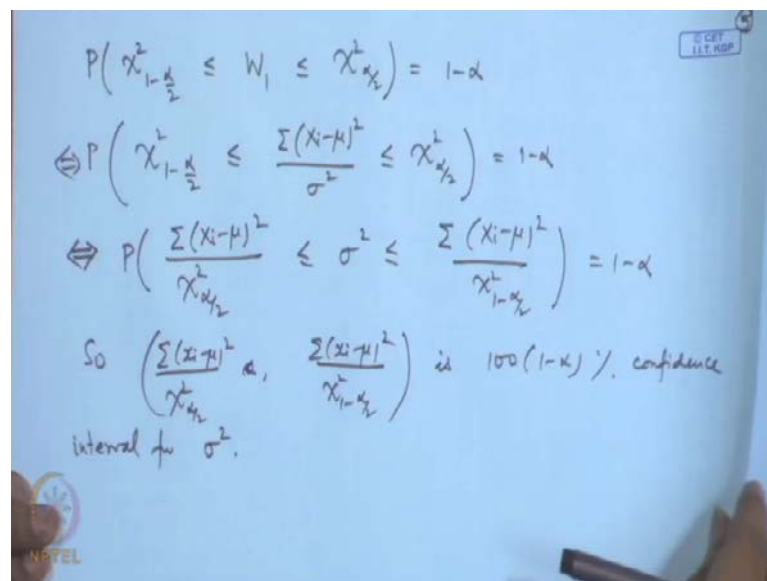 5
© CET
I.I.T. KGP
P( χ²_{1-α/2} ≤ W₁ ≤ χ²_{α/2} ) = 1-α
⇔ P( χ²_{1-α/2} ≤ Σ(Xi-μ)²/σ² ≤ χ²_{α/2} ) = 1-α
⇔ P( Σ(Xi-μ)²/χ²_{α/2} ≤ σ² ≤ Σ(Xi-μ)²/χ²_{1-α/2} ) = 1-α
So ( Σ(xi-μ)²/χ²_{α/2} , Σ(xi-μ)²/χ²_{1-α/2} ) is 100(1-α) %. confidence
interval for σ².
NPTEL